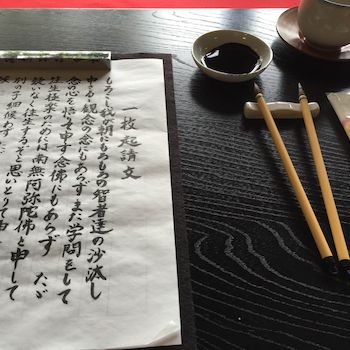 一枚起請文
もろこし我が朝にもろもろの智者達の沙汰し
申さるる観念の念にもあらずまた学問をして
念の心を悟りて申す念佛にもあらず ただ
往生極楽のためには南無阿弥陀佛と申して
疑いなく往生するぞと思いとりて申
別の仔細候わず